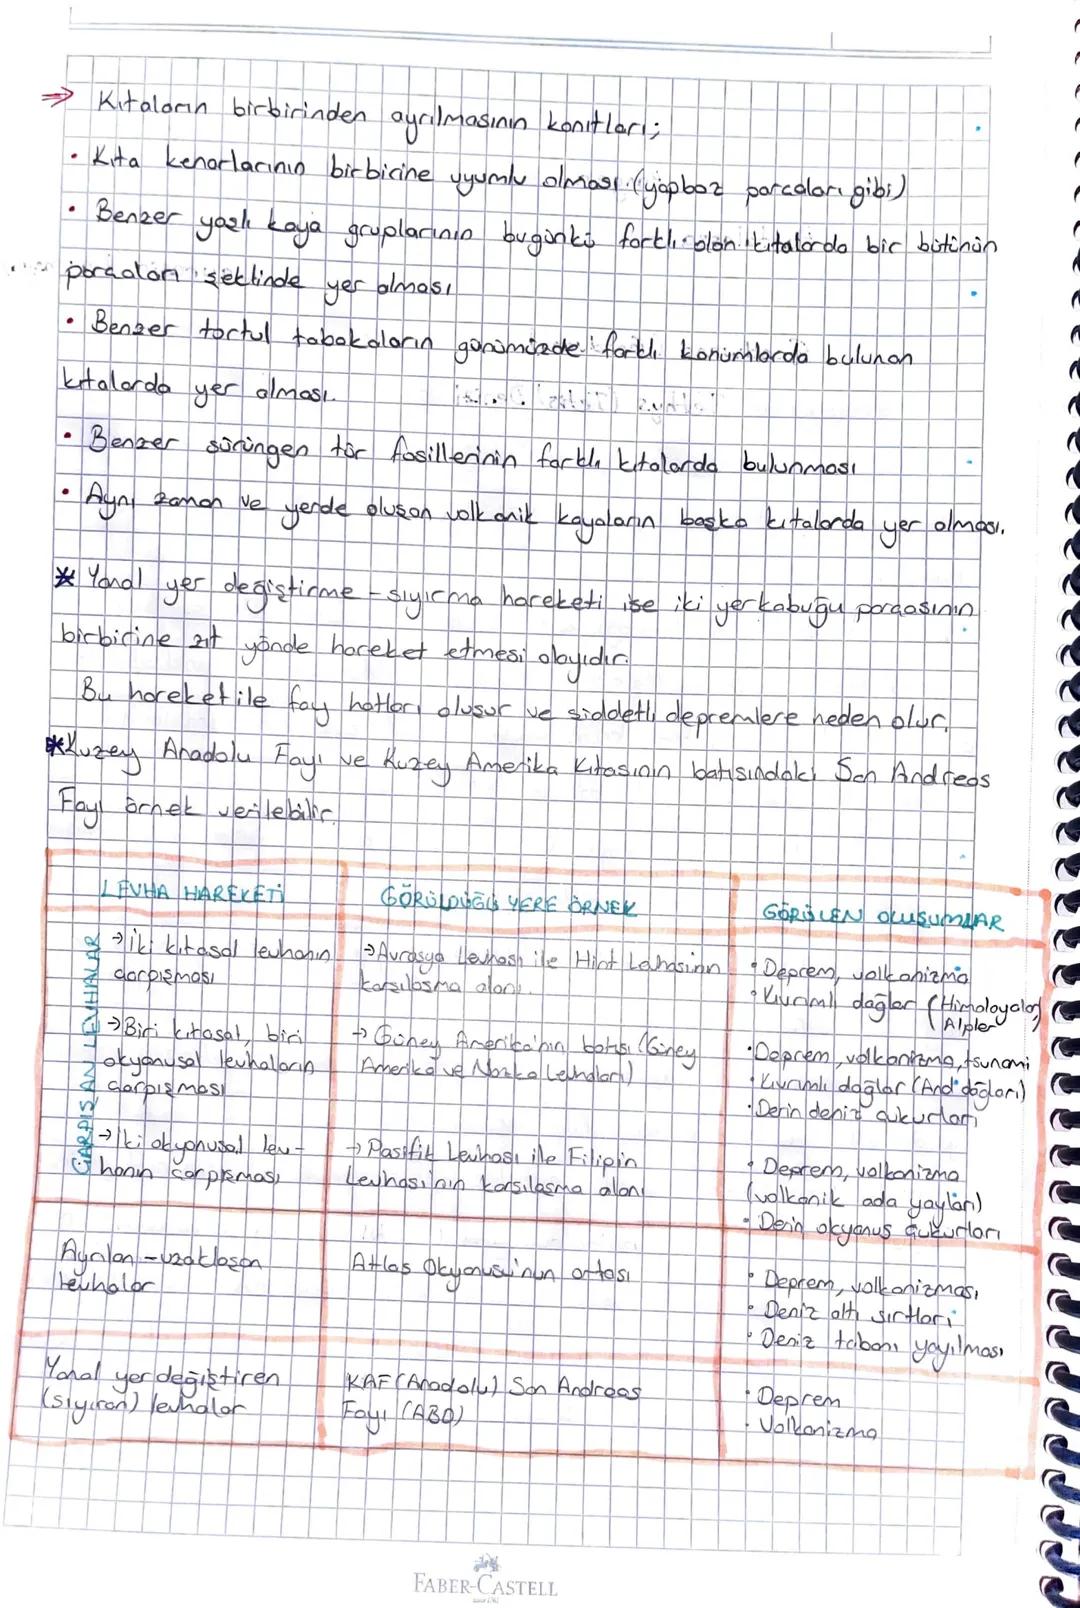 → Kıtaların birbirinden ayrılmasının kanıtları;
• Kıta kenarlarının birbirine uyumlu olması. (yapboz parçaları gibi)
• Benzer yaşlı kaya gruplarının bugünkü farklı olan kıtalarda bir bütünün
parçaları şeklinde yer alması
• Benzer tortul tabakaların günümüzde farklı konumlarda bulunan
kıtalarda yer alması.
• Benzer sürüngen tür fosillerinin farklı kıtalarda bulunması
• Aynı zaman ve yerde oluşan volkanik kayaların başka kıtalarda yer alması.
* Yanal yer değiştirme - sıyırma hareketi ise iki yerkabuğu parçasının
birbirine zıt yönde hareket etmesi olayıdır.
Bu hareket ile fay hatları oluşur ve şiddetli depremlere neden olur.
*Kuzey Anadolu Fayı ve Kuzey Amerika Kıtasının batısındaki San Andreas
Fayı örnek verilebilir.
LEVHA HAREKETİ
GÖRÜLDÜĞÜ YERE ÖRNEK
GÖRÜLEN OLUŞUMLAR
ÇARPIŞAN LEVHALAR
→ İki kıtasal levhanın
çarpışması
→ Avrasya Levhası ile Hint Levhasının
karşılaşma alanı.
• Deprem, volkanizma
• Kıvrımlı dağlar (Himalayalar,
Alpler
→ Biri kıtasal, biri
okyanusal levhaların
çarpışması
→ Güney Amerika'nın batısı (Güney
Amerika ve Nazka Levhaları)
• Deprem, volkanizma, tsunami
• Kıvrımlı dağlar (And dağları)
• Derin deniz çukurları
→ İki okyanusal lev-
hanın çarpışması
→ Pasifik Levhası ile Filipin
Levhası'nın karşılaşma alanı
• Deprem, volkanizma
(volkanik ada yayları)
• Derin okyanus çukurları
Ayrılan - uzaklaşan
levhalar
Atlas Okyanusu'nun ortası
• Deprem, volkanizması
• Deniz altı sırtları
• Deniz tabanı yayılması
Yanal yer değiştiren
(sıyıran) levhalar
KAF (Anadolu) San Andreas
Fayı (ABD)
• Deprem
• Volkanizma
FABER-CASTELL